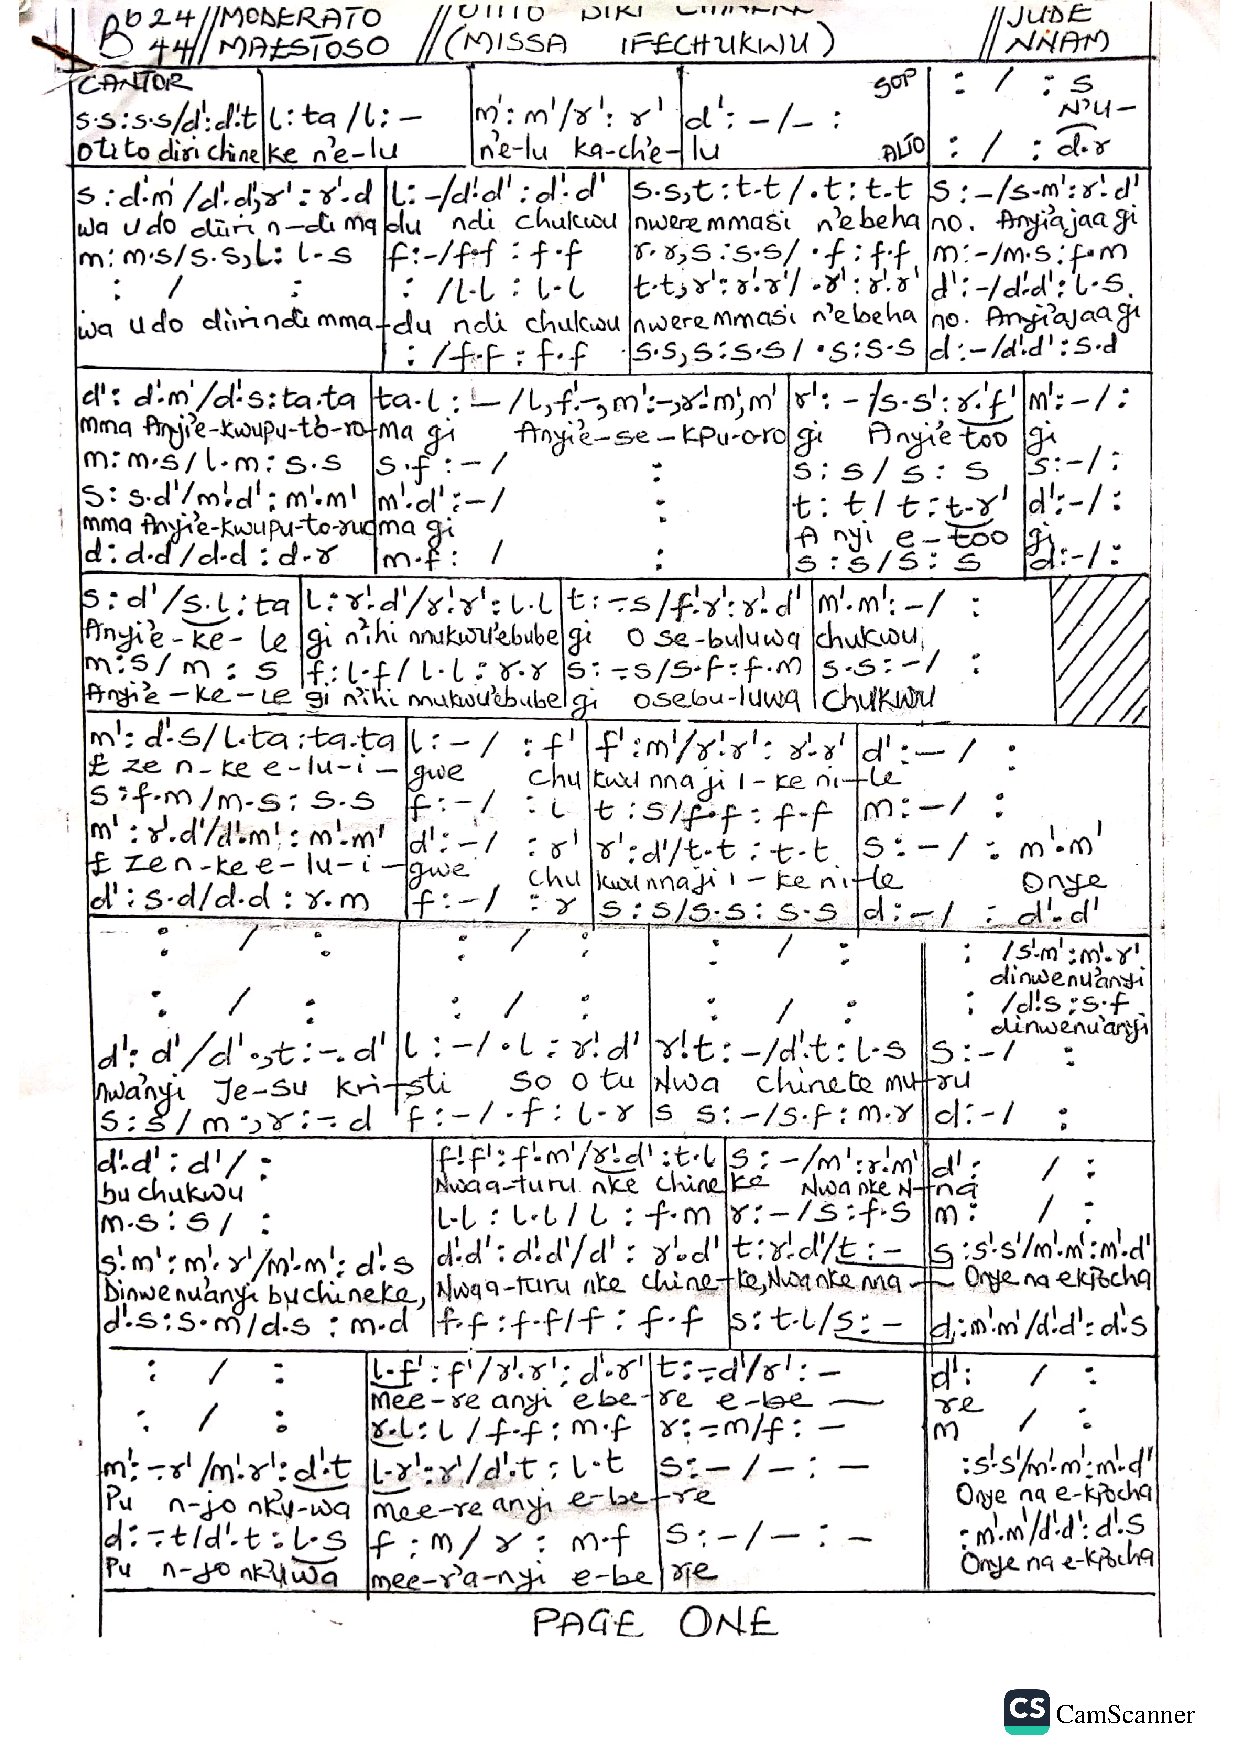 Bb 24 44 // MODERATO MAESTOSO // OTITO DIRI CHINEKE (MISSA IFECHUKWU) // JUDE NNAM
CANTOR SOP : / : s
s.s:s.s/d':d'.t l:ta/l:– m':m'/r':r' d':–/–: N'U–
otito diri chineke n'e-lu n'e-lu ka-ch'e-lu ALTO : / : d.r
s:d'.m'/d'.d',r':r'.d l:–/d'.d':d'.d' s.s,t:t.t/.t:t.t s:–/s.m':r'.d'
wa udo diiri n-di madu ndi chukwu nwere mmasi n'ebeha no. Anyiajaa gi
m:m.s/s.s,l:l.s f:–/f.f:f.f r.r,s:s.s/.f:f.f m:–/m.s:f.m
: / : : /l.l:l.l t.t,r':r'.r'/.r':r'.r' d':–/d'.d':l.s
wa udo diirindi mma-du ndi chukwu nwere mmasi n'ebeha no. Anyi'ajaa gi
: /f.f:f.f s.s,s:s.s/.s:s.s d:–/d'.d':s.d
d':d'.m'/d'.s:ta.ta ta.l:–/l,f'.–,m':–,r'.m',m' r':–/s.s':r'.f' m':–/:
mma Anyi'e-kwupu-to-ro-ma gi Anyi'e-se-kpu-oro gi Anyi'e too gi
m:m.s/l.m:s.s s.f:–/ : s:s/s:s s:–/:
s:s.d'/m'.d':m'.m' m'.d':–/ : t:t/t:t.r' d':–/:
mma Anyi'e-kwupu-to-ruo ma gi A nyi e-too gi
d:d.d/d.d:d.r m.f: / : s:s/s:s d:–/:
s:d'/s.l:ta l:r'.d'/r'.r':l.l t:–.s/f'.r':r'.d' m'.m':–/ :
Anyi'e-ke-le gi n'ihi mukwu'ebube gi o se-buluwa chukwu
m:s/m:s f:l.f/l.l:r.r s:–.s/s.f:f.m s.s:–/ :
Anyi'e-ke-le gi n'ihi mukwu'ebube gi osebu-luwa chukwu
m':d'.s/l.ta:ta.ta l:–/ :f' f':m'/r'.r':r'.r' d':–/ :
E ze n-ke e-lu-i-gwe chu kwu nnaji i-ke ni-le
s:f.m/m.s:s.s f:–/ :l t:s/f.f:f.f m:–/ :
m':r'.d'/d'.m':m'.m' d':–/ :r' r':d'/t.t:t.t s:–/ :m'.m'
E ze n-ke e-lu-i-gwe chu kwu nnaji i-ke ni-le Onye
d':s.d/d.d:r.m f:–/ :r s:s/s.s:s.s d:–/ :d'.d'
: / : : / : : / : : /s'.m':m'.r'
dinwenu'anyi
: / : : / : : / : : /d'.s:s.f
dinwenu'anyi
d':d'/d'.,t:–.d' l:–/.l:r'.d' r'.t:–/d'.t:l.s s:–/ :
Nwa'nyi Je-su kri-sti so o tu Nwa chineke mu-ru
s:s/m.,r:–.d f:–/.f:l.r s s:–/s.f:m.r d:–/ :
d'.d':d'/ : f'.f':f'.m'/r'.d':t.l s:–/m':r'.m' d': / :
bu chukwu Nwaa-turu nke chineke Nwa nke N-na
m.s:s/ : l.l:l.l/l:f.m r:–/s:f.s m: / :
s'.m':m'.r'/m'.m':d'.s d'.d':d'.d'/d':r'.d' t:r'.d'/t:– s:s'.s'/m'.m':m'.d'
Dinwenu'anyi bu chineke, Nwaa-turu nke chine-ke, Nwa nke nna – Onye na ekpocha
d'.s:s.m/d.s:m.d f.f:f.f/f:f.f s:t.l/s:– d:m'.m'/d'.d':d'.s
: / : l.f':f'/r'.r':d'.r' t:–.d'/r':– d': / :
mee-re anyi ebe-re e-be — re
: / : r.l:l/f.f:m.f r:–.m/f:– m / :
m':–.r'/m'.r':d'.t l.r':r'/d'.t:l.t s:–/–:– :s'.s'/m'.m':m'.d'
Pu n-jo nkụ-wa mee-re anyi e-be-re Onye na e-kpocha
d:–.t/d'.t:l.s f:m/r:m.f s:–/–:– :m'.m'/d'.d':d'.s
Pu n-jo nkụwa mee-r'a-nyi e-be rie Onye na e-kpocha
PAGE ONE
CS CamScanner